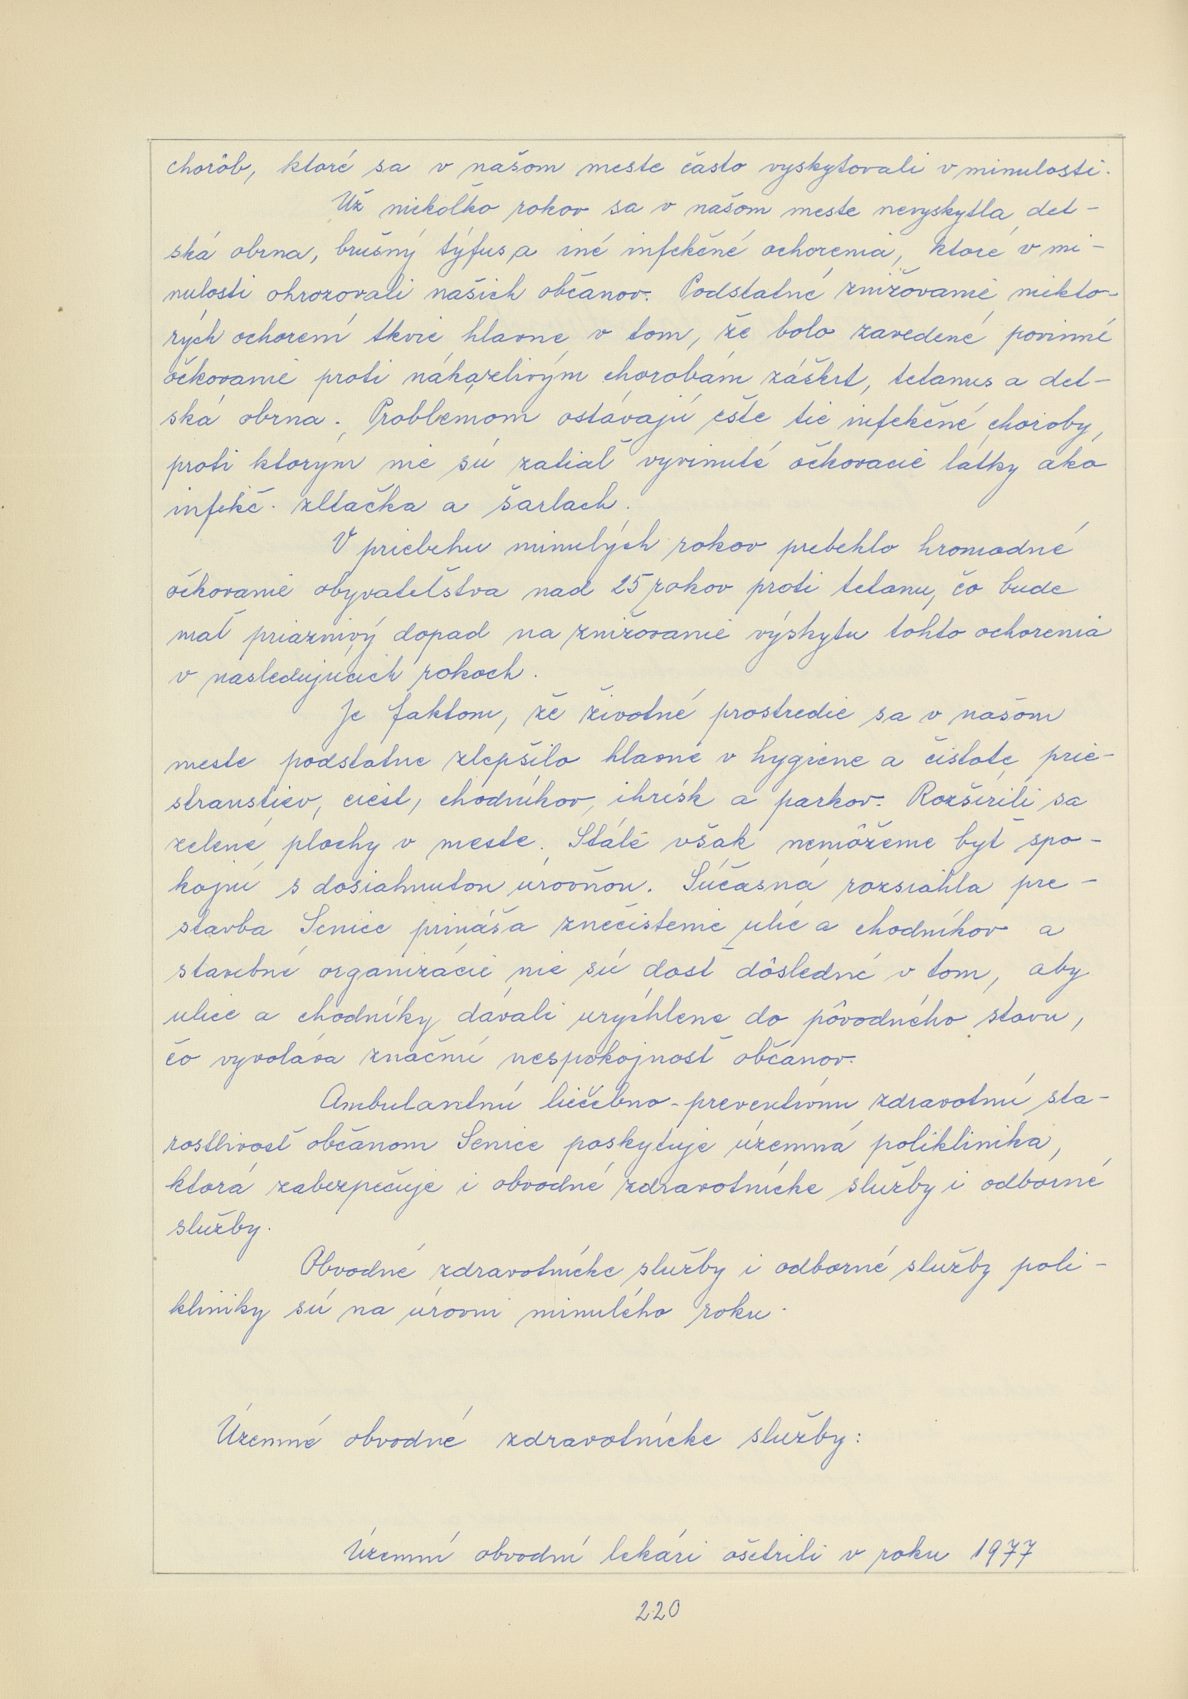 chorôb, ktoré sa v našom meste často vyskytovali v minulosti.
Už niekoľko rokov sa v našom meste nevyskytla det-
ská obrna, brušný týfus, a iné infekčné ochorenia, ktoré v mi-
nulosti ohrozovali našich občanov. Podstatné znižovanie niekto-
rých ochorení tkvie hlavne v tom, že bolo zavedené povinné
očkovanie proti nákazlivým chorobám záškrt, tetanus a det-
ská obrna. Problémom ostávajú ešte tie infekčné choroby,
proti ktorým nie sú zatiaľ vyvinuté očkovacie látky ako
infekč. žltačka a šarlach.
V priebehu minulých rokov prebehlo hromadné
očkovanie obyvateľstva nad 25 rokov proti tetanu, čo bude
mať priaznivý dopad na znižovanie výskytu tohto ochorenia
v nasledujúcich rokoch.
Je faktom, že životné prostredie sa v našom
meste podstatne zlepšilo hlavne v hygiene a čistote prie-
stranstiev, ciest, chodníkov, ihrísk a parkov. Rozšírili sa
zelené plochy v meste. Stále však nemôžeme byť spo-
kojní s dosiahnutou úrovňou. Súčasná rozsiahla pre-
stavba Senice prináša znečistenie ulíc a chodníkov a
stavebné organizácie nie sú dosť dôsledné v tom, aby
ulice a chodníky dávali urýchlene do pôvodného stavu,
čo vyvoláva značnú nespokojnosť občanov.
Ambulantnú liečebno-preventívnu zdravotnú sta-
rostlivosť občanom Senice poskytuje územná poliklinika,
ktorá zabezpečuje i obvodné zdravotnícke služby i odborné
služby.
Obvodné zdravotnícke služby i odborné služby poli-
kliniky sú na úrovni minulého roku.
Územné obvodné zdravotnícke služby:
Územní obvodní lekári ošetrili v roku 1977
220